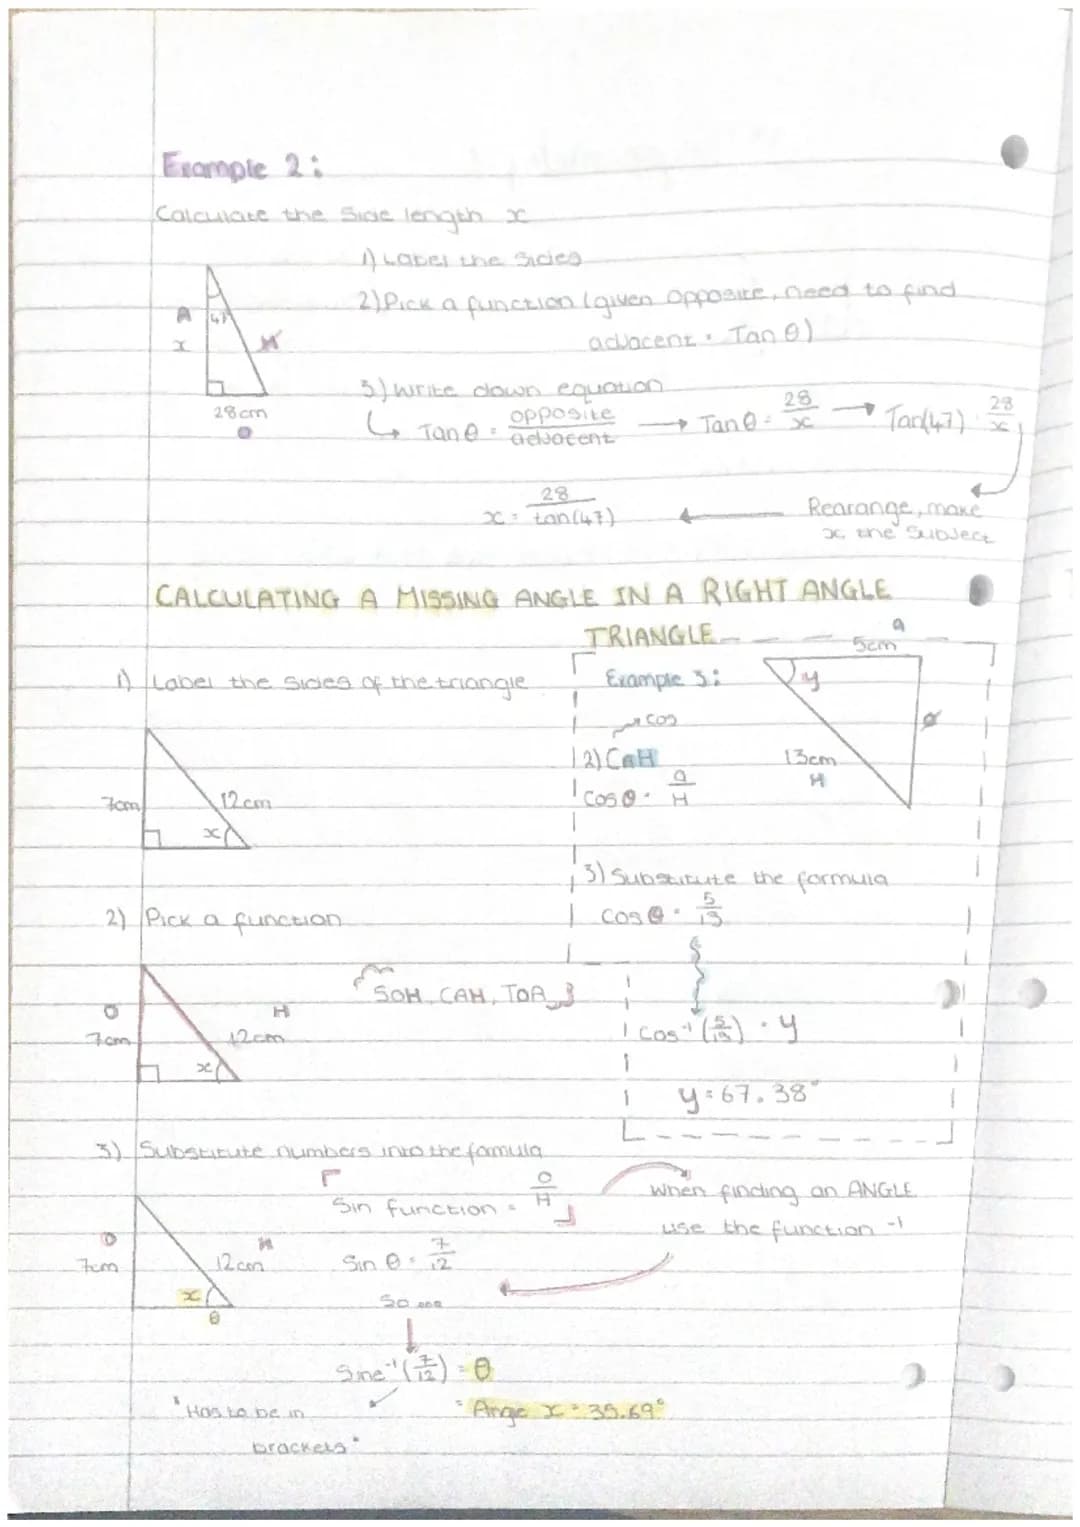 Example 2:
Calculate the side length x
1) Label the sides
2) Pick a function (given opposite, need to find
adjacent = Tan θ)
A
x
47
H
28cm
O
3) Write down equation
↳ Tan θ = opposite/adjacent → Tan θ = 28/x → Tan(47) = 28/x
x = 28/tan(47) ← Rearange, make
x the subject
CALCULATING A MISSING ANGLE IN A RIGHT ANGLE
TRIANGLE
1) Label the sides of the triangle
7cm
12cm
x
Example 3:
a
5cm
y
13cm
H
cos
2) CAH
Cos θ = a/H
3) Substitute the formula
Cos θ = 5/13
cos⁻¹ (5/13) = y
y = 67.38°
2) Pick a function
SOH, CAH, TOA
O
7cm
H
12cm
x
3) Substitute numbers into the formula
O
7cm
H
12cm
x
θ
Sin function = O/H
when finding an ANGLE
use the function -1
Sin θ = 7/12
So...
Sine⁻¹ (7/12) = θ
"Has to be in
brackets"
= Ange x = 35.69°